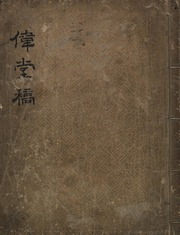 偉堂稿